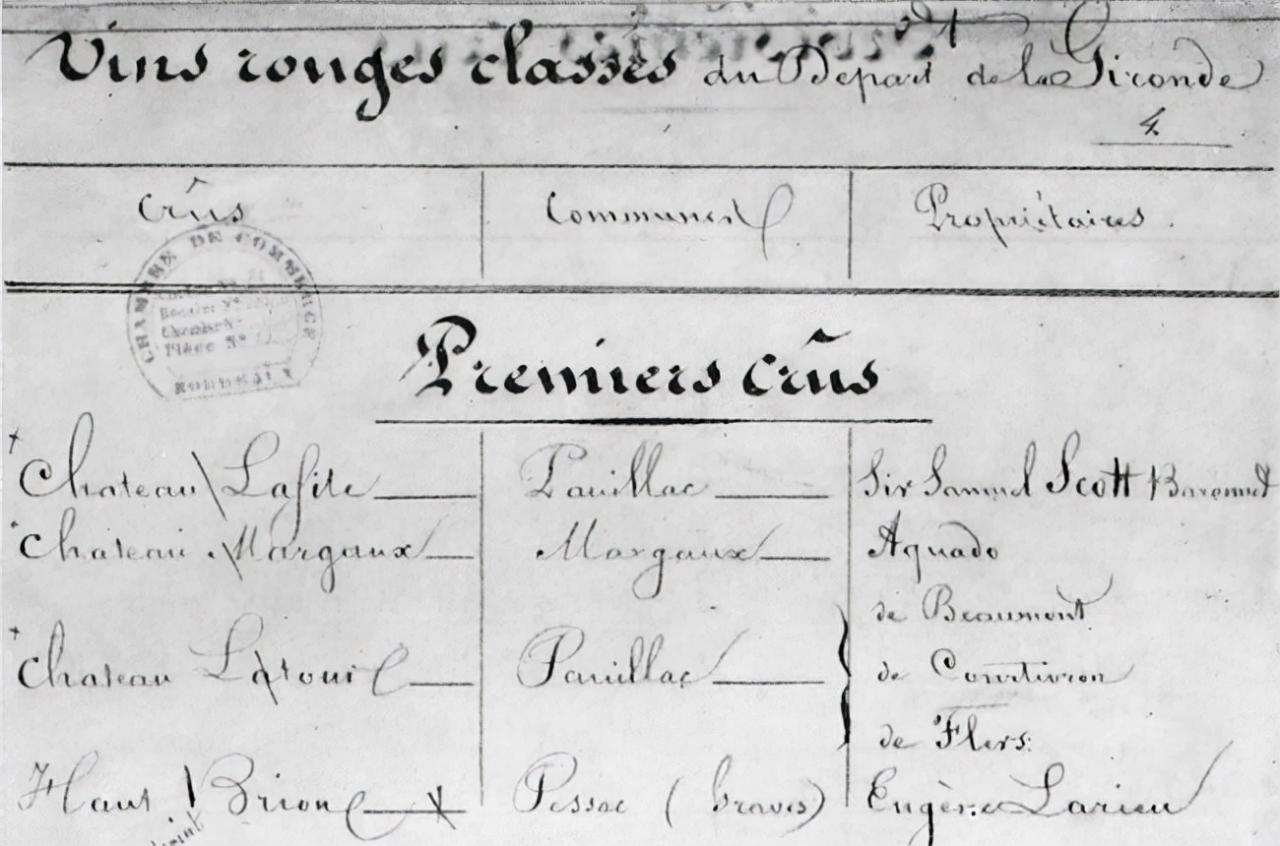 Vins rouges classés du Départ de la Gironde
4
Crûs Communes Propriétaires
CHAMBRE DE COMMERCE
BORDEAUX
Premiers crûs
Chateau Lafite Pauillac Sir Samuel Scott Baronnet
Chateau Margaux Margaux Aguado
de Beaumont
Chateau Latour Pauillac de Courtivron
de Flers
Haut Brion Pessac (Graves) Eugène Larieu